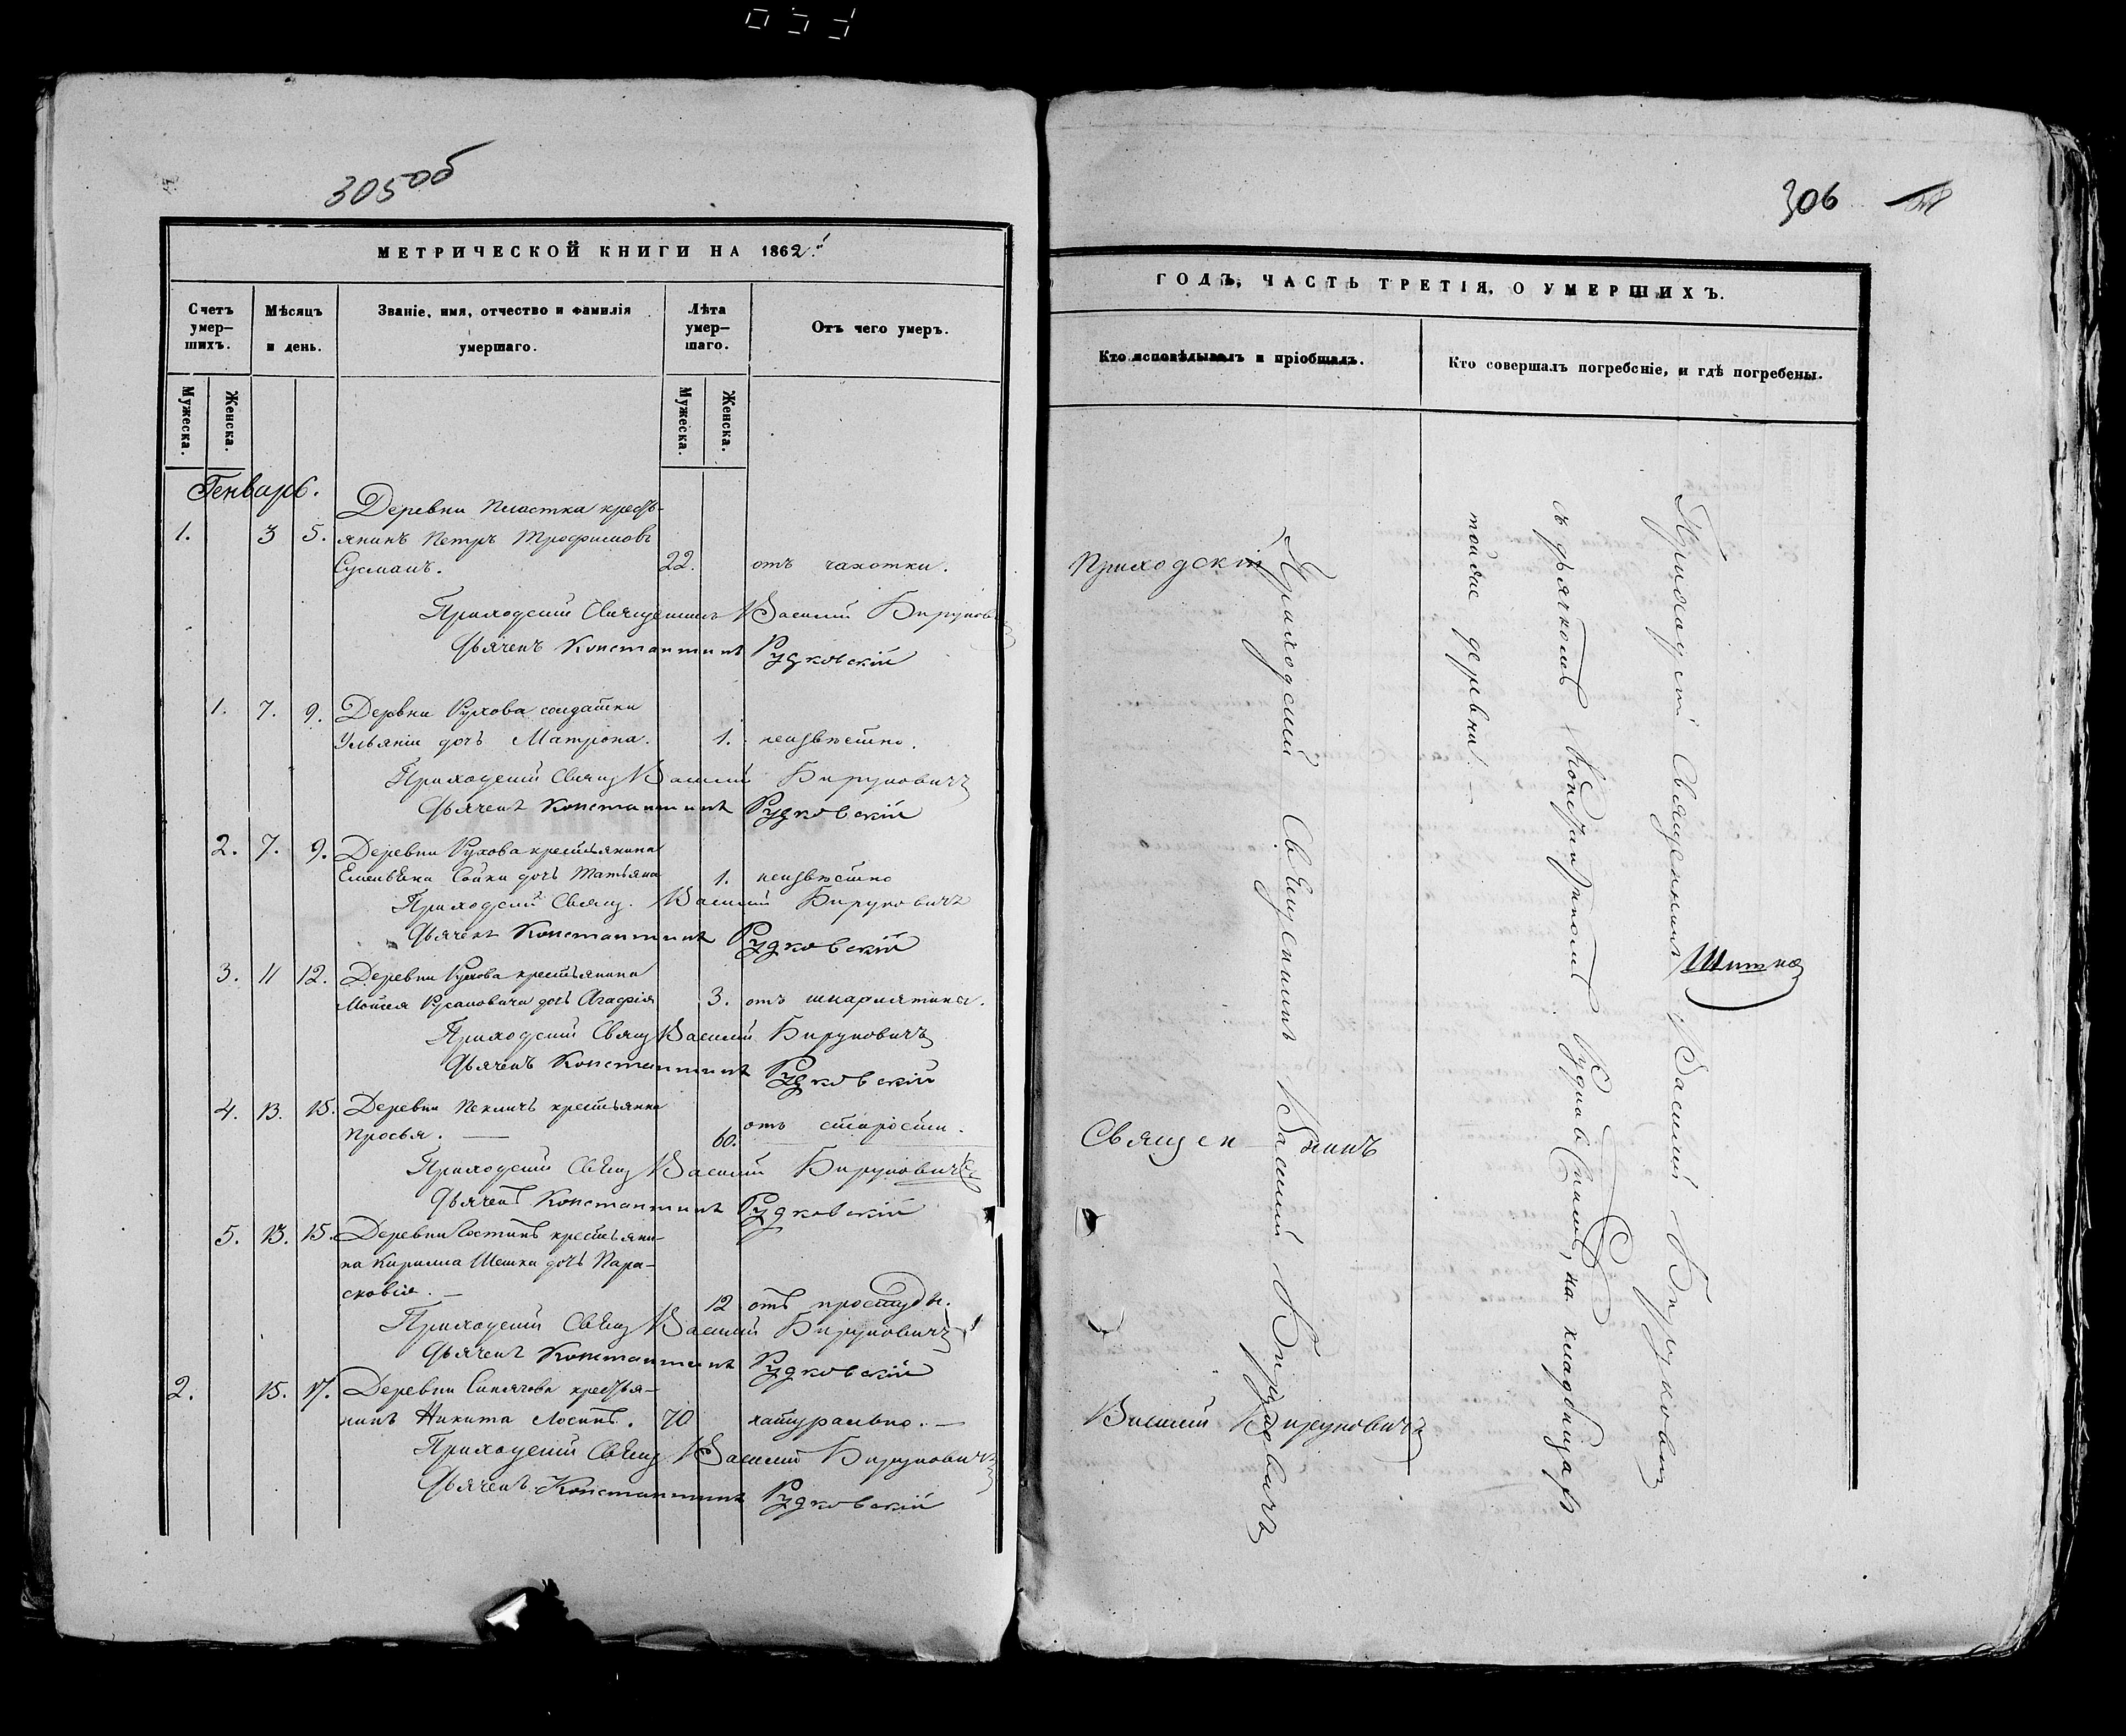 305 об
МЕТРИЧЕСКОЙ КНИГИ НА 1862й
Счетъ умер-шихъ.
Мѣсяцъ и день.
Званіе, имя, отчество и фамилія умершаго.
Лѣта умер-шаго.
Отъ чего умеръ.
Мужеска.
Женска.
Мужеска.
Женска.
Генварь.
Деревни крестъ-
1. 3 5. янинъ Петръ Трофимовъ
Сусманъ. 22. отъ чахотки.
Приходскій Священникъ Василій Бируковичъ
Дьячекъ Константинъ Рудковскій
1. 7. 9. Деревни Рухова солдатки
Ульяніи дочь Матрона. 1. неизвѣстно.
Приходскій Свящ Василій Бируковичъ
Дьячекъ Константинъ Рудковскій
2. 7. 9. Деревни Рухова крестьянина
дочь Татьяна 1. неизвѣстно
Приходскій Свящ. Василій Бируковичъ
Дьячекъ Константинъ Рудковскій
3. 11 12. Деревни Рухова крестьянина
Моисея дочь Агафія 3. отъ шкарлятина.
Приходскій Свящ Василій Бируковичъ
Дьячекъ Константинъ Рудковскій
4. 13. 15. Деревни крестьянка
Просья. — 60. отъ старости.
Приходскій Свящ Василій Бируковичъ
Дьячекъ Константинъ Рудковскій
5. 13. 15. Деревни крестьяни-
на Кирилла Шешки дочь Пара-
сковія. — 12 отъ простуды.
Приходскій Свящ Василій Бируковичъ
Дьячекъ Константинъ Рудковскій
2. 15. 17. Деревни крестья-
нинъ Никита Лосикъ. 70 натурально. —
Приходскій Свящ Василій Бируковичъ
Дьячекъ Константинъ Рудковскій
306
ГОДЪ, ЧАСТЬ ТРЕТІЯ, О УМЕРШИХЪ.
Кто исповѣдывалъ и пріобщалъ.
Кто совершалъ погребеніе, и гдѣ погребены.
Приходскій
Священникъ
Василій Бируковичъ
Приходскій Священникъ Василій Бируковичъ
Приходскій Священникъ Василій Бируковичъ
съ дьячкомъ Константиномъ Рудковскимъ, на кладбищахъ
тойже деревни. —